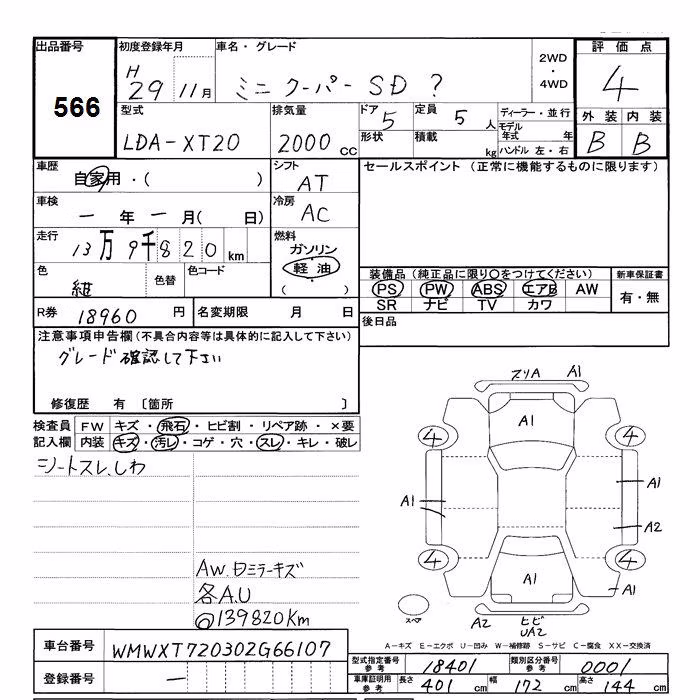 出品番号
566
初度登録年月
H
29 11月
車名・グレード
ミニ クーパー SD ?
2WD
・
4WD
評価点
4
型式
LDA-XT20
排気量
2000 CC
ドア 5
形状
定員 5 人
積載 kg
ディーラー・並行
モデル年式 年
ハンドル 左・右
外装 内装
B B
車歴
自家用・( )
シフト
AT
セールスポイント (正常に機能するものに限ります)
車検
一 年 一 月( 日)
冷房
AC
走行
13万9千820km
燃料
ガソリン
軽油
( )
色
紺
色替
色コード
装備品 (純正品に限り○をつけてください)
PS PW ABS エアB AW
SR ナビ TV カワ
新車保証書
有・無
R券 18960 円
名変期限 月 日
後日品
注意事項申告欄(不具合内容等は具体的に記入して下さい)
グレード確認して下さい
修復歴 有 〔箇所 〕
検査員 FW キズ・飛石・ヒビ割・リペア跡・×要
記入欄 内装 キズ・汚レ・コゲ・穴・スレ・キレ・破レ
シートスレ、しわ
AW.日ミラーキズ
各A.U
@139820Km
スリA A1
A1
4 4
A1
A1
A2
4 4
A1
A1
スペア
A2 ヒビ
UA2
A-キズ E-エクボ U-凹み W-補修跡 S-サビ C-腐食 XX-交換済
車台番号 WMWXT720302G66107
登録番号 一
型式指定番号
参考
18401
類別区分番号
参考
0001
車庫証明用
参考
長さ 401 cm 幅 172 cm 高さ 144 cm